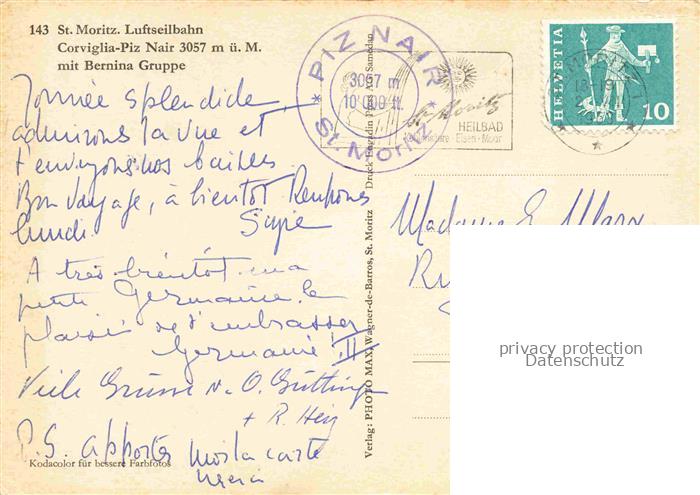 143 St. Moritz. Luftseilbahn
Corviglia-Piz Nair 3057 m ü. M.
mit Bernina Gruppe
Journée splendide,
admirons la vue et
t'envoyons nos baisers.
Bon voyage, à bientôt
lundi.
A très bientôt ma
petite Germaine le
plaisir de t'embrasser
Germaine
Viele Grüsse v. O.
+ R.
P.S. apportes moi la carte
merci
Kodacolor für bessere Farbfotos
Verlag: PHOTO MAX, Wagner-de-Barros, St. Moritz Druck Engadin Press AG Samedan
* PIZ NAIR *
3057 m
10'000 ft.
St. Moritz
St. Moritz
HEILBAD
Eisen-Moor
HELVETIA
10
Madame E. Marx
privacy protection
Datenschutz